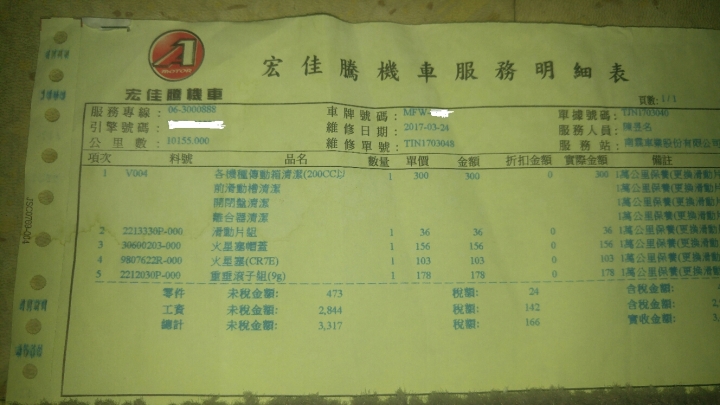 宏佳騰機車服務明細表
MOTOR
宏佳騰機車
頁數: 1 / 1
服務專線: 06-3000888 車牌號碼: MFW- 單據號碼: TIN1703040
引擎號碼: 維修日期: 2017-03-24 服務人員:
公里數: 10155.000 維修單號: TIN1703048 服務站:
項次 料號 品名 數量 單價 金額 折扣金額 實際金額 備註
1 V004 各機種傳動箱清潔(200CC以 1 300 300 0 300 1萬公里保養(更換滑動片
前滑動槽清潔 1萬公里保養(更換滑動片
開閉盤清潔 1萬公里保養(更換滑動片
離合器清潔 1萬公里保養(更換滑動片
2 2213330P-000 滑動片組 1 36 36 0 36 1萬公里保養(更換滑動片
3 30600203-000 火星塞帽蓋 1 156 156 0 156 1萬公里保養(更換滑動片
4 9807622R-000 火星塞(CR7E) 1 103 103 0 103 1萬公里保養(更換滑動片
5 2212030P-000 重垂滾子組(9g) 1 178 178 0 178 1萬公里保養(更換滑動片
零件 未稅金額: 473 稅額: 24 含稅金額:
工資 未稅金額: 2,844 稅額: 142 含稅金額:
總計 未稅金額: 3,317 稅額: 166 實收金額: